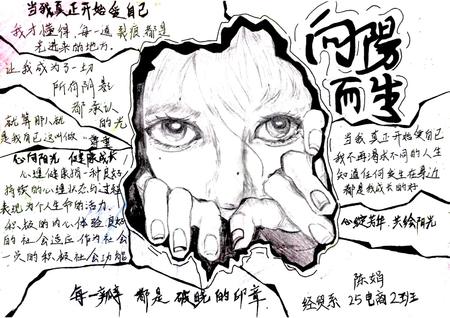 当我真正开始爱自己
我才懂得,每一道裂痕都是
光进来的地方.
让我成为了一切
所有阴影
都承认
的光
就算别人就
是我自己这叫做"尊重
心向阳光 健康成长
心理健康指一种良好
持续的心理状态与过程
表现为个人生命的活力.
积极的内心体验良好
的社会适应作为社会
一员的积极社会功能
向陽
而生
当我真正开始爱自己
我不再渴求不同的人生
知道任何发生在身边
都是我成长的好
心绽芳华,共绘阳光
每一瓣 都是破晓的印章
陈娟
经贸系 25电商2班